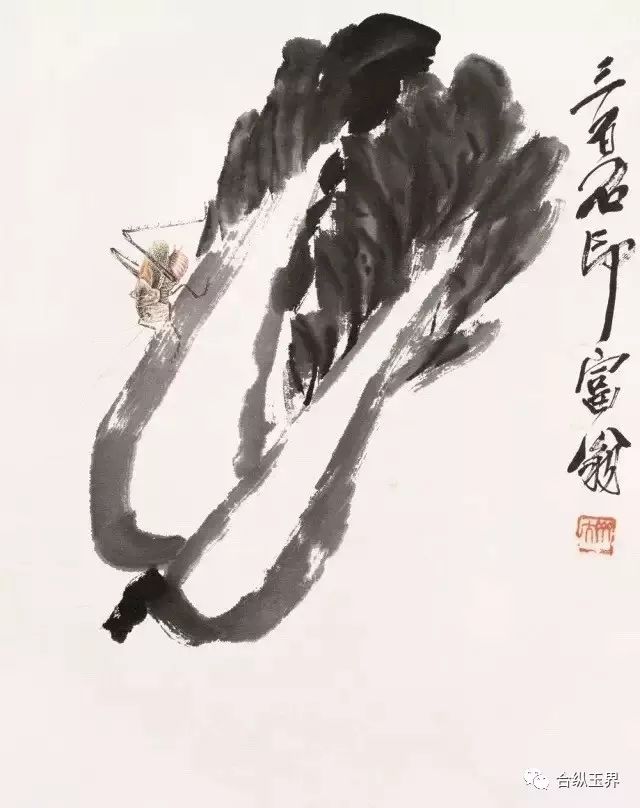 三百石印富翁
合纵玉界